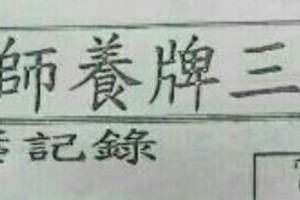 師養牌三
記錄